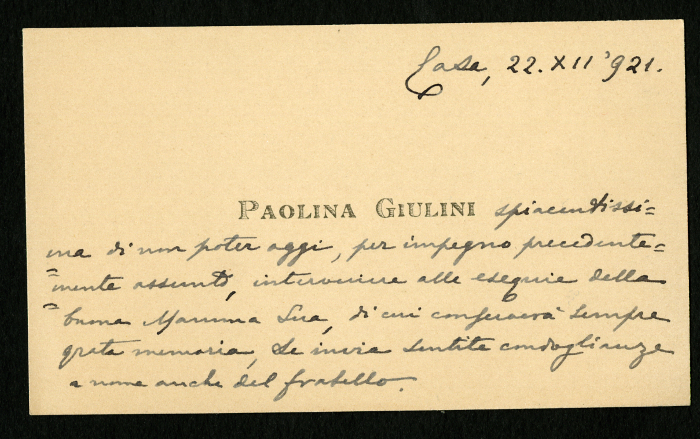 Casa, 22.XII '921.
PAOLINA GIULINI spiacentissi=
ma di non poter oggi, per impegno precedente=
=mente assunto, intervenire alle esequie della
= buona Mamma Sua, di cui conserverà sempre
grata memoria, Le invia sentite condoglianze
a nome anche del fratello.